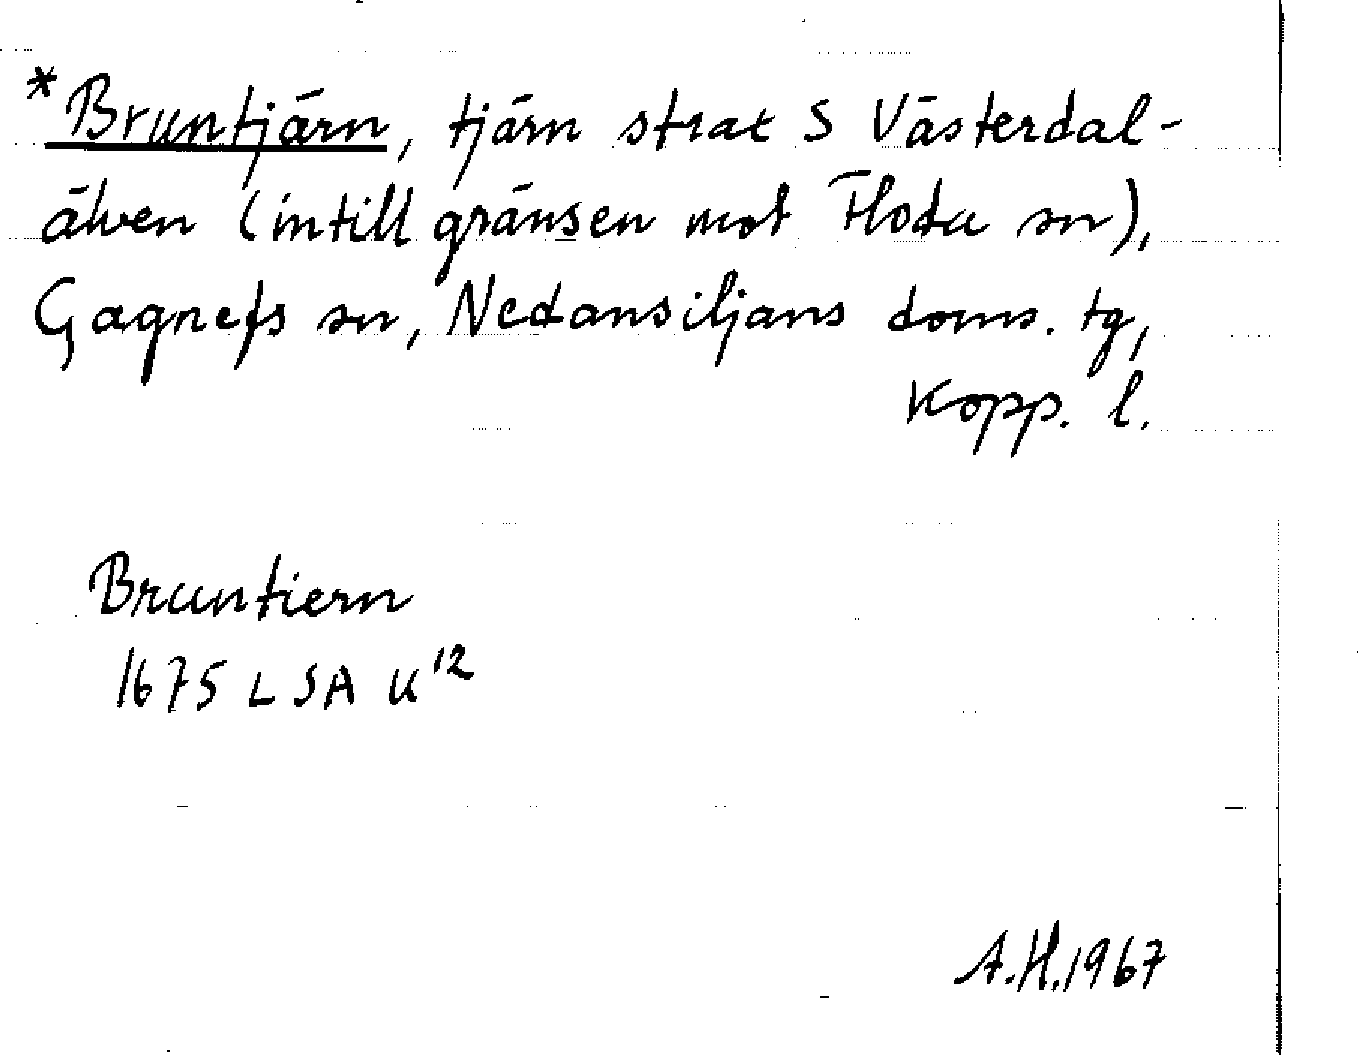 *Bruntjärn, tjärn strax S Västerdal-
älven (intill gränsen mot Floda sn),
Gagnefs sn, Nedansiljans doms. tg,
Kopp. l.
Bruntiern
1675 LSA U¹²
A.H.1967